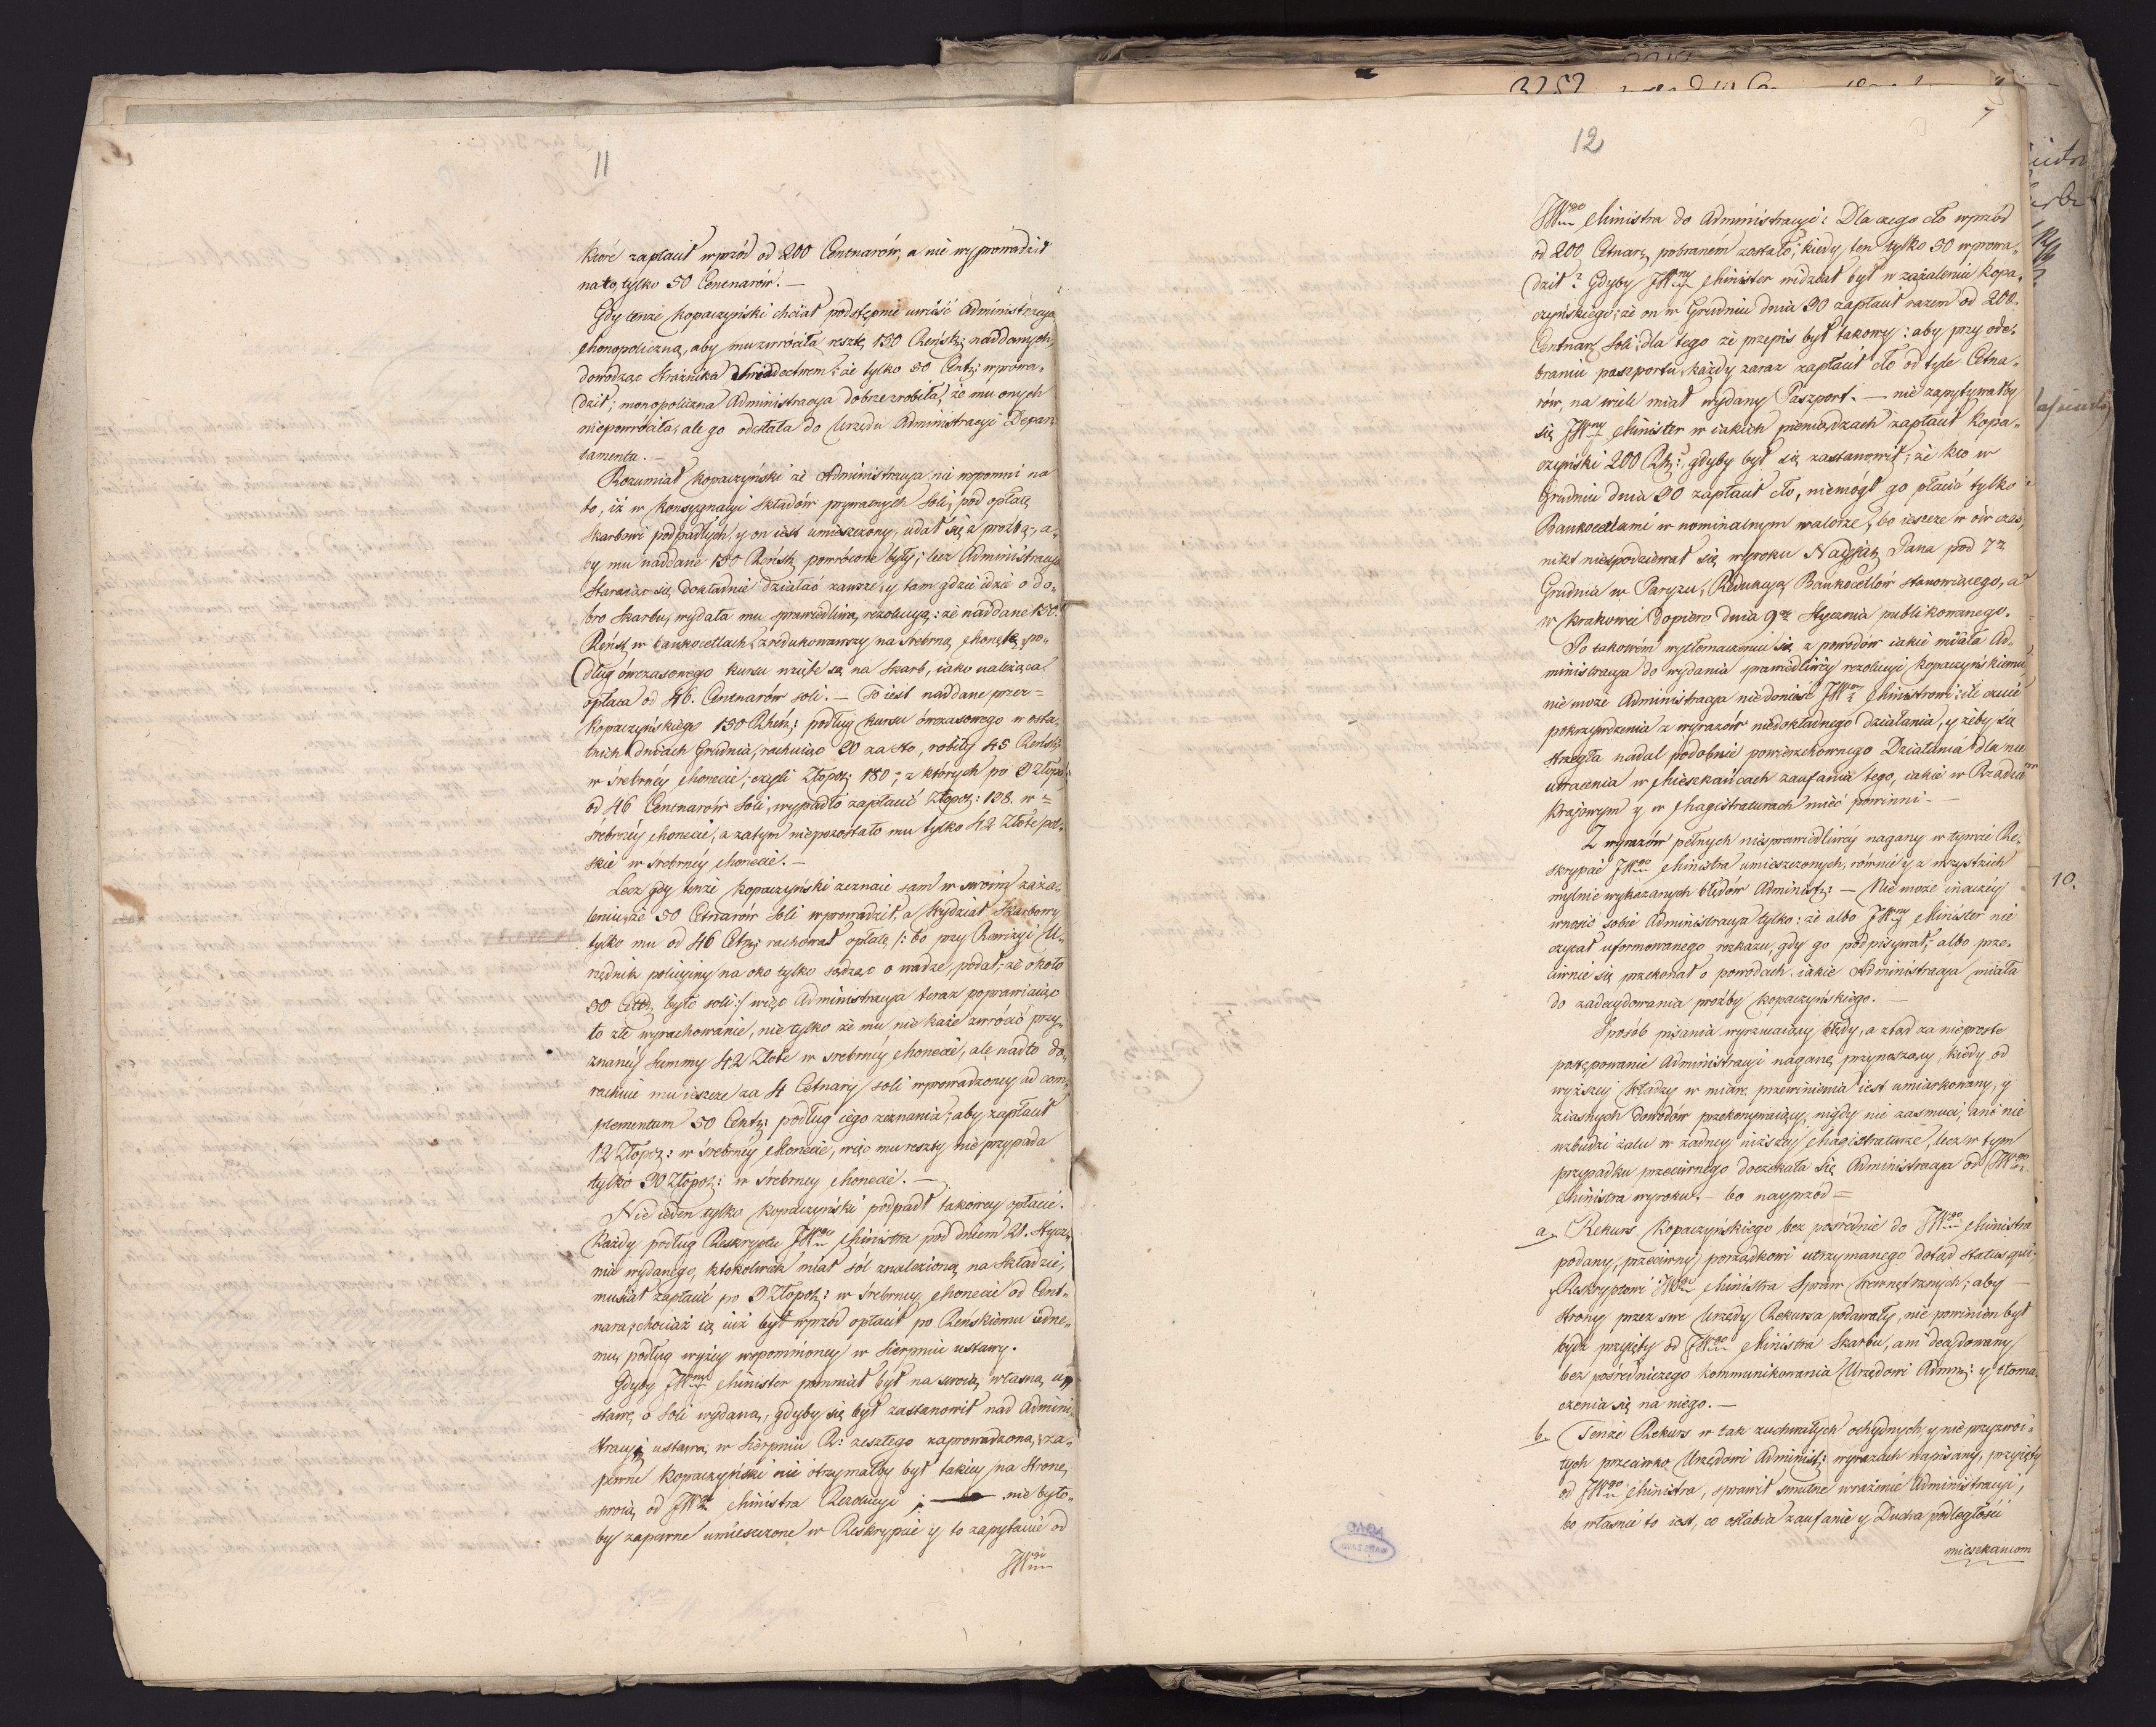 11
które zapłacił wprzód od 200 Centnarów, a nie wyprowadził
na to, tylko 50 Centnarów. —
Gdy tenże Kopaczyński chciał podstępnie uwieść Administracyą
Monopoliczną, aby mu zwróciła resztę 150 Reńsk: naddanych,
dowodząc Strażnika Świadectwem: że tylko 50 Centn: wprowa„
dził; monopoliczna Administracya dobrze zrobiła, że mu onych
niepowróciła, ale go odesłała do Urzędu Administracyi Depar„
tamentu. —
Rozumiał Kopaczyński że Administracya nie wspomni na
to, iż w Konsygnacyi Składów prywatnych Soli, pod opłatę
Skarbowi podpadłych, y on iest umieszczony, udał się z prozbą, a„
by mu naddane 150 Reńsk: powrócone były; lecz Administracya
Staraiąc się dokładnie działać zawsze, y tam gdzie idzie o do„
bro Skarbu, wydała mu sprawiedliwą rezolucyą: że naddane 150.
Reńsk: w bankocetlach zredukowawszy na Srebrną Monetę, po„
dług ówczasowego kursu wzięte są na Skarb, iako należąca
opłata od 46. Centnarów soli. — To iest naddane przez =
Kopaczyńskiego 150 Rheń: podług kursu ówczasowego w osta„
tnich dniach Grudnia, rachuiąc 20 za sto, robiły 45 Reńsk:
w Srebrnéy Monecie; czyli Złopol: 180; z których po 3 Złopol:
od 46 Centnarów Soli, wypadło zapłacić Złopol: 138. w =
srebrnéy Monecie, a zatym niepozostało mu tylko 42 Złote pol„
skie w srebrnéy Monecie. —
Lecz gdy tenże Kopaczyński zeznaie sam w swoim zaża„
leniu, że 50 Cetnarów Soli wprowadził, a Wydział Skarbowy
tylko mu od 46 Cetn: rachował opłatę /: bo przy Rewizyi U„
rzędnik policyiny na oko tylko sądząc o wadze, podał, że około
50 Cetn: było soli :/ więc Administracya teraz poprawiaiąc
to złe wyrachowanie, nie tylko że mu nie każe zwrócić przy„
znanéy Summy 42 Złote w srebrnéy Monecie, ale nadto do„
rachuie mu ieszcze za 4 Cetnary soli wprowadzoney ad com„
plementum 50 Centn: podług iego zeznania; aby zapłacił
12 Złopol: w śrebrnéy Monecie, więc mu reszty nie przypada
tylko 30 Złopol: w śrebrney Monecie. —
Nie ieden tylko Kopaczyński podpadł takowey opłacie.
Każdy podług Reskryptu JWgo Ministra pod dniem 21. Stycz„
nia wydanego, ktokolwiek miał sól znalezioną na Składzie,
musiał zapłacić po 3 Złopol: w śrebrney Monecie od Cent„
nara, chociaż ią iuż był wprzód opłacił po Reńskiemu iedne„
mu, podług wyżey wspomnioney w Sierpniu ustawy.
Gdyby JWny Minister pomniał był na swoią własną u„
stawę o Soli wydaną, gdyby się był zastanowił nad Admini„
stracyi ustawą w Sierpniu R: zeszłego zaprowadzoną, za„
pewne Kopaczyński nie otrzymałby był takiey na Stronę
swoią od JWgo Ministra Rezolucyi; nie było„
by zapewne umieszczone w Reskrypcie y to zapytanie od
JWgo
12
7
JWgo Ministra do Administracyi: Dla czego cło wprzód
od 200 Cetnar: pobranem zostało; kiedy ten tylko 50 wprowa„
dził? Gdyby JWny Minister widział był w zażaleniu Kopa„
czyńskiego; że on w Grudniu dnia 30 zapłacił razem od 200.
Centnar: Soli; dla tego że przepis był takowy: aby przy ode„
braniu paszportu, każdy zaraz zapłacił cło od tyle Cetna„
rów, na wiele miał wydany Paszport. — nie zapytywałby
się JWny Minister w iakich pieniądzach zapłacił Kopa„
czyński 200 Rh:, gdyby był się zastanowił; że kto w
Grudniu dnia 30 zapłacił cło, niemógł go płacić tylko
Bankocetlami w nominalnym walorze, bo ieszcze w ów czas,
nikt niespodziewał się wyroku Nayjaś: Pana pod 7m
Grudnia w Paryżu, Redukcyą Bankocetlów stanowiącego, a
w Krakowie dopiero dnia 9go Stycznia publikowanego.
Po takowém wytłomaczeniu się z powodów iakie miała Ad„
ministracya do wydania sprawiedliwéy rezolucyi Kopaczyńskiemu
nie może Administracya niedonieść JWmu Ministrowi: ile czuie
pokrzywdzenia z wyrazów niedokładnego działania, y żeby się
strzegła nadal podobnie powierzchownego Działania dla nie
utracenia w Mieszkańcach zaufania tego, iakie w Rządzie
Kraiowym y w Magistraturach mieć powinni. —
Z wyrazów pełnych niesprawiedliwéy nagany w tymże Re„
skrypcie JWgo Ministra umieszczonych, równie y z wszystkich
mylnie wykazanych błędów Administ: — Nie może inaczéy
wnosić sobie Administracya tylko: że albo JWny Minister nie
czytał uformowanego rozkazu, gdy go podpisywał; albo prze„
ciwnie się przekonał o powodach iakie Administracya miała
do zadecydowania prośby Kopaczyńskiego. —
Sposób pisania wyrzucaiący błędy, a ztąd za nieproste
postępowanie Administracyi naganę przynoszący, kiedy od
wyższéy Władzy w miarę przewinienia iest umiarkowany, y
z iasnych dowodów przekonywaiący, nigdy nie zasmuci, ani nie
wzbudzi żalu w żadney niższéy Magistraturze, lecz w tym
przypadku przeciwnego doczekała się Administracya od JWgo
Ministra wyroku, — bo nayprzód =
a. Rekurs Kopaczyńskiego bez pośrednie do JWgo Ministra
podany, przeciwny porządkowi utrzymanego dotąd status quo,
y Reskryptowi JWgo Ministra Spraw Wewnętrznych; aby —
strony przez swe Urzędy Rekursa podawały, nie powinien był
bydź przyięty od JWgo Ministra Skarbu, ani decydowany
bez pośredniczego kommunikowania Urzędowi Admin: y tłoma„
czenia się na niego. —
b. Tenże Rekurs w tak zuchwałych ochydnych y nie przyzwoi„
tych przeciwko Urzędowi Administ: wyrazach napisany, przyięty
od JWgo Ministra, sprawił smutne wrażenie Administracyi,
bo właśnie to iest, co osłabia zaufanie y Ducha podległości
mieszkańcom
10.